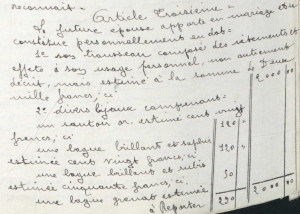 reconnait.-
Article Troisième =
La future épouse apporte en mariage et se
constitue personnellement en dot =
1° son trousseau composé des vêtements et
effets à son usage personnel, non autrement
décrit, mais estimé à la somme de Deux
mille francs, ci 2000 "
2° divers bijoux comprenant =
un sautoir or estimé cent vingt
francs, ci 120 "
une bague brillants et saphirs
estimée cent vingt francs, ci 120
une bague brillants et rubis
estimée cinquante francs, ci 50
une bague grenat estimée
à Reporter 290 " 2000 "